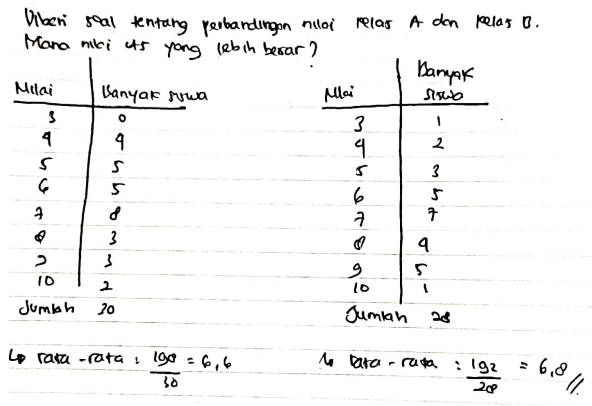 Diberi soal tentang perbandingan nilai kelas A dan kelas B.
Mana nilai uts yang lebih besar?
Nilai Banyak siswa
3 0
4 4
5 5
6 5
7 8
8 3
9 3
10 2
Jumlah 30
↳ rata-rata : 198/30 = 6,6
Nilai Banyak siswa
3 1
4 2
5 3
6 5
7 7
8 4
9 5
10 1
Jumlah 28
↳ rata-rata : 192/28 = 6,8 //